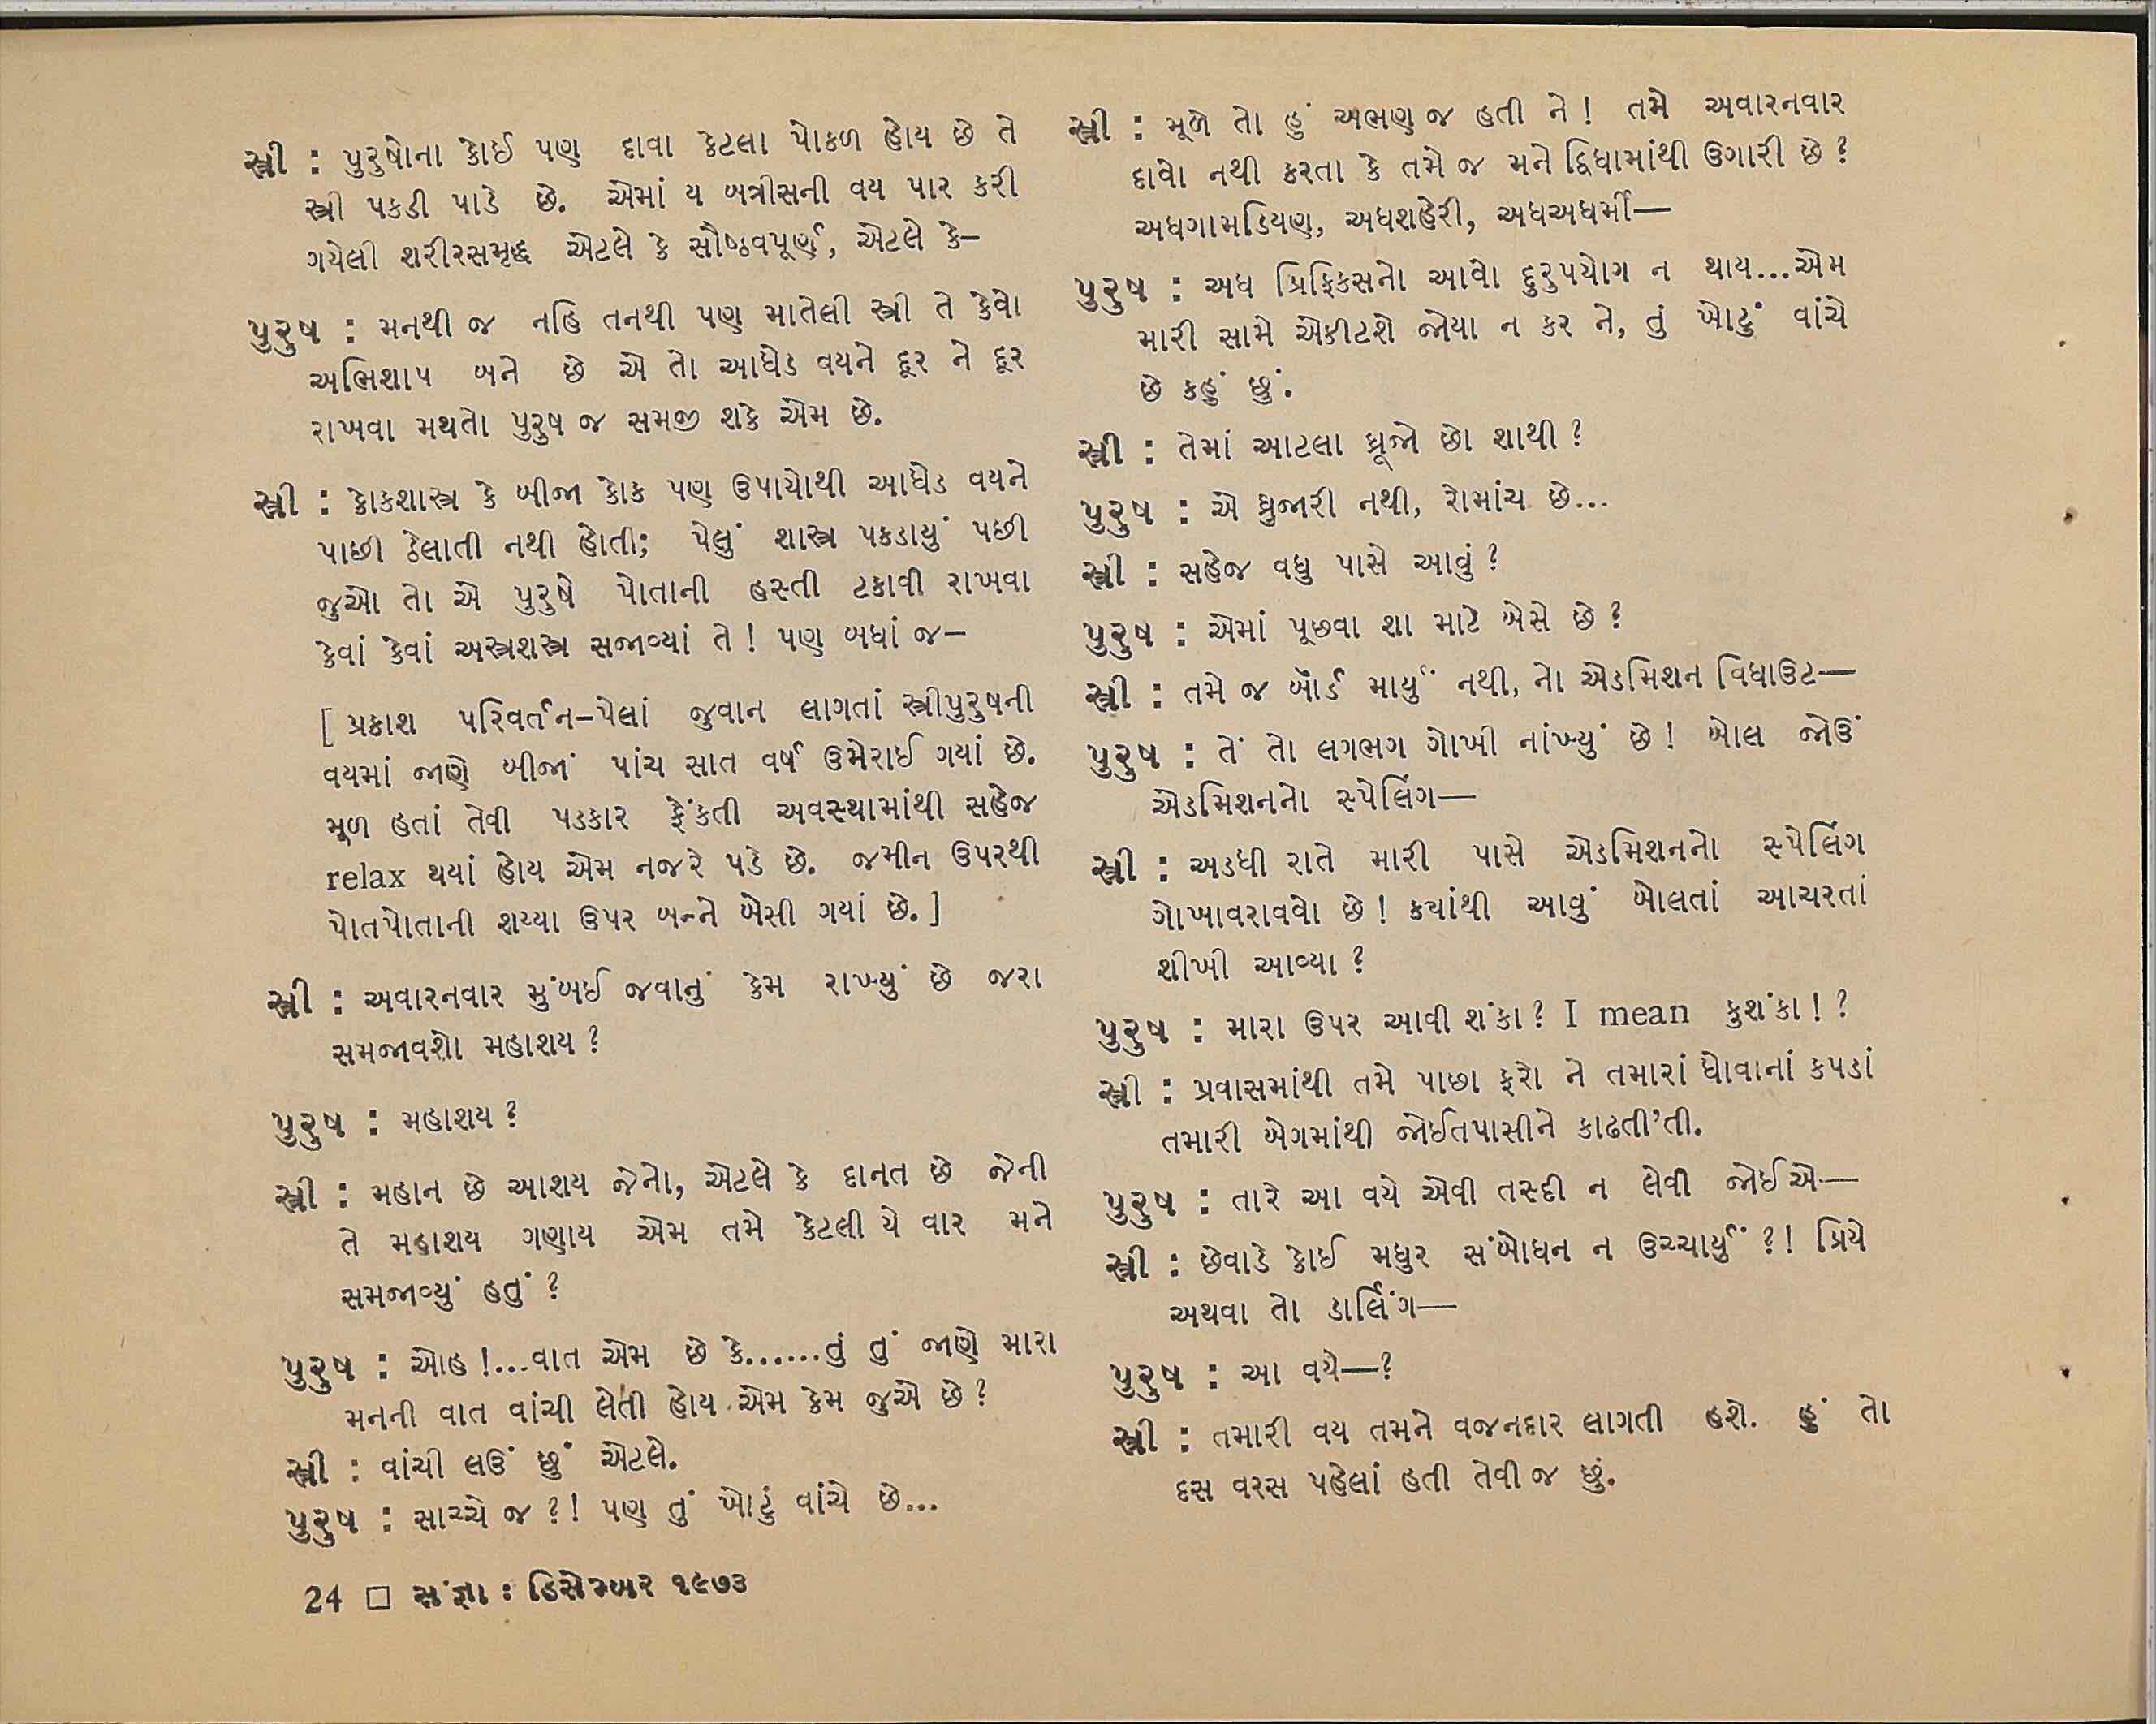 સ્ત્રી : પુરુષોના કોઈ પણ દાવા કેટલા પોકળ હોય છે તે
સ્ત્રી પકડી પાડે છે. એમાં ય બત્રીસની વય પાર કરી
ગયેલી શરીરસમૃદ્ધ એટલે કે સૌષ્ઠવપૂર્ણ, એટલે કે–
પુરુષ : મનથી જ નહિ તનથી પણ માતેલી સ્ત્રી તે કેવો
અભિશાપ બને છે એ તો આધેડ વયને દૂર ને દૂર
રાખવા મથતો પુરુષ જ સમજી શકે એમ છે.
સ્ત્રી : કોકશાસ્ત્ર કે બીજા કોક પણ ઉપાયોથી આધેડ વયને
પાછી ઠેલાતી નથી હોતી; પેલું શાસ્ત્ર પકડાયું પછી
જુઓ તો એ પુરુષે પોતાની હસ્તી ટકાવી રાખવા
કેવાં કેવાં અસ્ત્રશસ્ત્ર સજાવ્યાં તે! પણ બધાં જ–
[ પ્રકાશ પરિવર્તન–પેલાં જુવાન લાગતાં સ્ત્રીપુરુષની
વયમાં જાણે બીજાં પાંચ સાત વર્ષ ઉમેરાઈ ગયાં છે.
મૂળ હતાં તેવી પડકાર ફેંકતી અવસ્થામાંથી સહેજ
relax થયાં હોય એમ નજરે પડે છે. જમીન ઉપરથી
પોતપોતાની શય્યા ઉપર બન્ને બેસી ગયાં છે. ]
સ્ત્રી : અવારનવાર મુંબઈ જવાનું કેમ રાખ્યું છે જરા
સમજાવશો મહાશય?
પુરુષ : મહાશય?
સ્ત્રી : મહાન છે આશય જેનો, એટલે કે દાનત છે જેની
તે મહાશય ગણાય એમ તમે કેટલી યે વાર મને
સમજાવ્યું હતું?
પુરુષ : ઓહ!...વાત એમ છે કે......તું તું જાણે મારા
મનની વાત વાંચી લેતી હોય એમ કેમ જુએ છે?
સ્ત્રી : વાંચી લઉં છું એટલે.
પુરુષ : સાચ્ચે જ?! પણ તું ખોટું વાંચે છે...
24 □ સંજ્ઞા : ડિસેમ્બર ૧૯૭૩
સ્ત્રી : મૂળે તો હું અભણ જ હતી ને! તમે અવારનવાર
દાવો નથી કરતા કે તમે જ મને દ્વિધામાંથી ઉગારી છે?
અધગામડિયણ, અધશહેરી, અધઅધર્મી—
પુરુષ : અધ પ્રિફિકસનો આવો દુરુપયોગ ન થાય...એમ
મારી સામે એકીટશે જોયા ન કર ને, તું ખોટું વાંચે
છે કહું છું.
સ્ત્રી : તેમાં આટલા ધ્રૂજો છો શાથી?
પુરુષ : એ ધ્રુજારી નથી, રોમાંચ છે...
સ્ત્રી : સહેજ વધુ પાસે આવું?
પુરુષ : એમાં પૂછવા શા માટે બેસે છે?
સ્ત્રી : તમે જ બૉર્ડ માર્યું નથી, નો એડમિશન વિધાઉટ—
પુરુષ : તેં તો લગભગ ગોખી નાંખ્યું છે! બોલ જોઉં
એડમિશનનો સ્પેલિંગ—
સ્ત્રી : અડધી રાતે મારી પાસે એડમિશનનો સ્પેલિંગ
ગોખાવરાવવો છે! કયાંથી આવું બોલતાં આચરતાં
શીખી આવ્યા?
પુરુષ : મારા ઉપર આવી શંકા? I mean કુશંકા!?
સ્ત્રી : પ્રવાસમાંથી તમે પાછા ફરો ને તમારાં ધોવાનાં કપડાં
તમારી બેગમાંથી જોઈતપાસીને કાઢતી'તી.
પુરુષ : તારે આ વયે એવી તસ્દી ન લેવી જોઈએ—
સ્ત્રી : છેવાડે કોઈ મધુર સંબોધન ન ઉચ્ચાર્યું?! પ્રિયે
અથવા તો ડાર્લિંગ—
પુરુષ : આ વયે—?
સ્ત્રી : તમારી વય તમને વજનદાર લાગતી હશે. હું તો
દસ વરસ પહેલાં હતી તેવી જ છું.